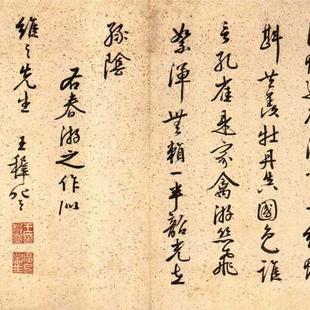 斟共羨牡丹真國色誰
言孔雀是家禽游絲飛
絮渾無賴一半韶光在
綠陰
右春游之作似
維之先生 王穉登